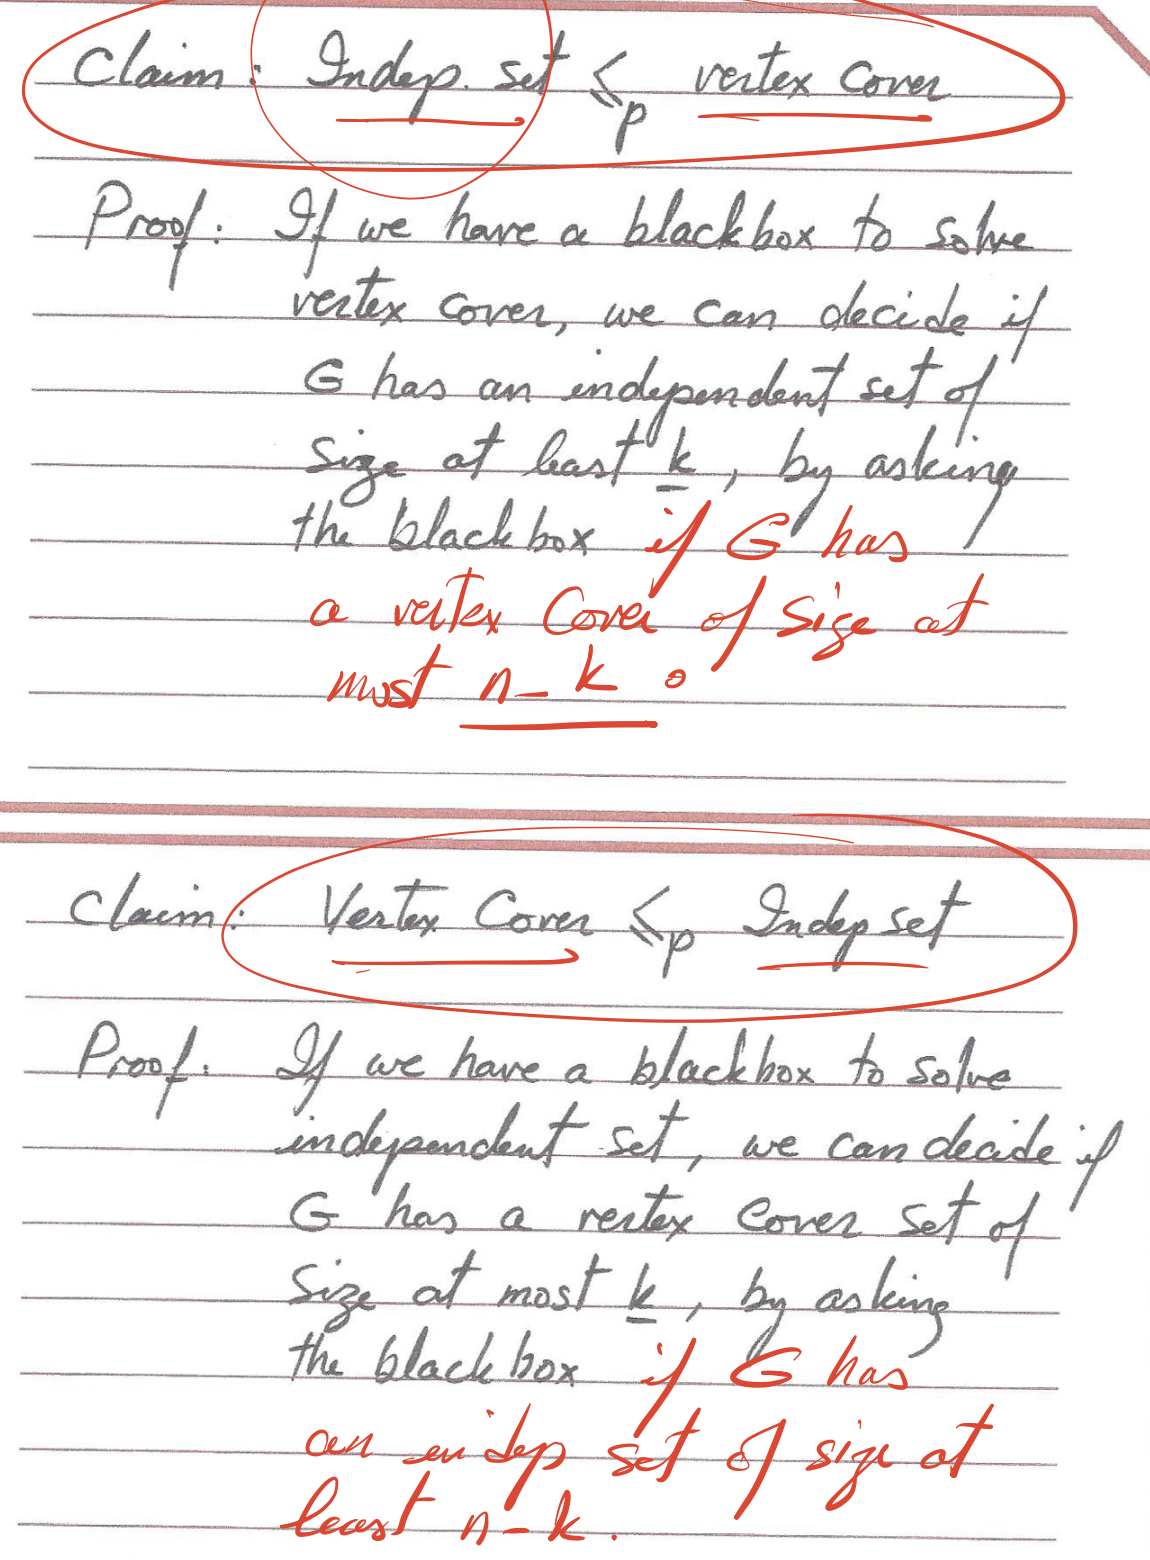 Claim: Indep. set ≤p vertex cover
Proof: If we have a blackbox to solve
vertex cover, we can decide if
G has an independent set of
size at least k, by asking
the blackbox if G has
a vertex Cover of size at
most n-k.
Claim: Vertex Cover ≤p Indep set
Proof. If we have a blackbox to solve
independent set, we can decide if
G has a vertex cover set of
size at most k, by asking
the blackbox if G has
an indep set of size at
least n-k.